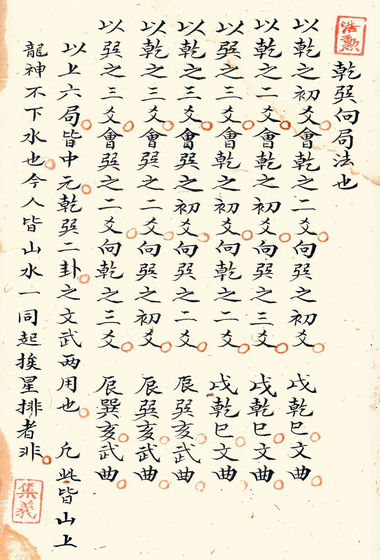 浩勳
乾巽向局法也
以乾之初爻會乾之二爻向巽之初爻 戌乾巳文曲
以乾之二爻會乾之初爻向巽之三爻 戌乾巳文曲
以巽之三爻會乾之初爻向乾之二爻 戌乾巳文曲
以乾之三爻會巽之初爻向巽之二爻 辰巽亥武曲
以乾之三爻會巽之二爻向巽之初爻 辰巽亥武曲
以巽之三爻會巽之二爻向乾之三爻 辰巽亥武曲
以上六局皆中元乾巽二卦之文武两用也 凡此皆山上
龍神不下水也今人皆山水一同起挨星排者非
集義